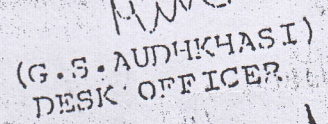 (G.S.AUDHKHASI)
DESK OFFICER